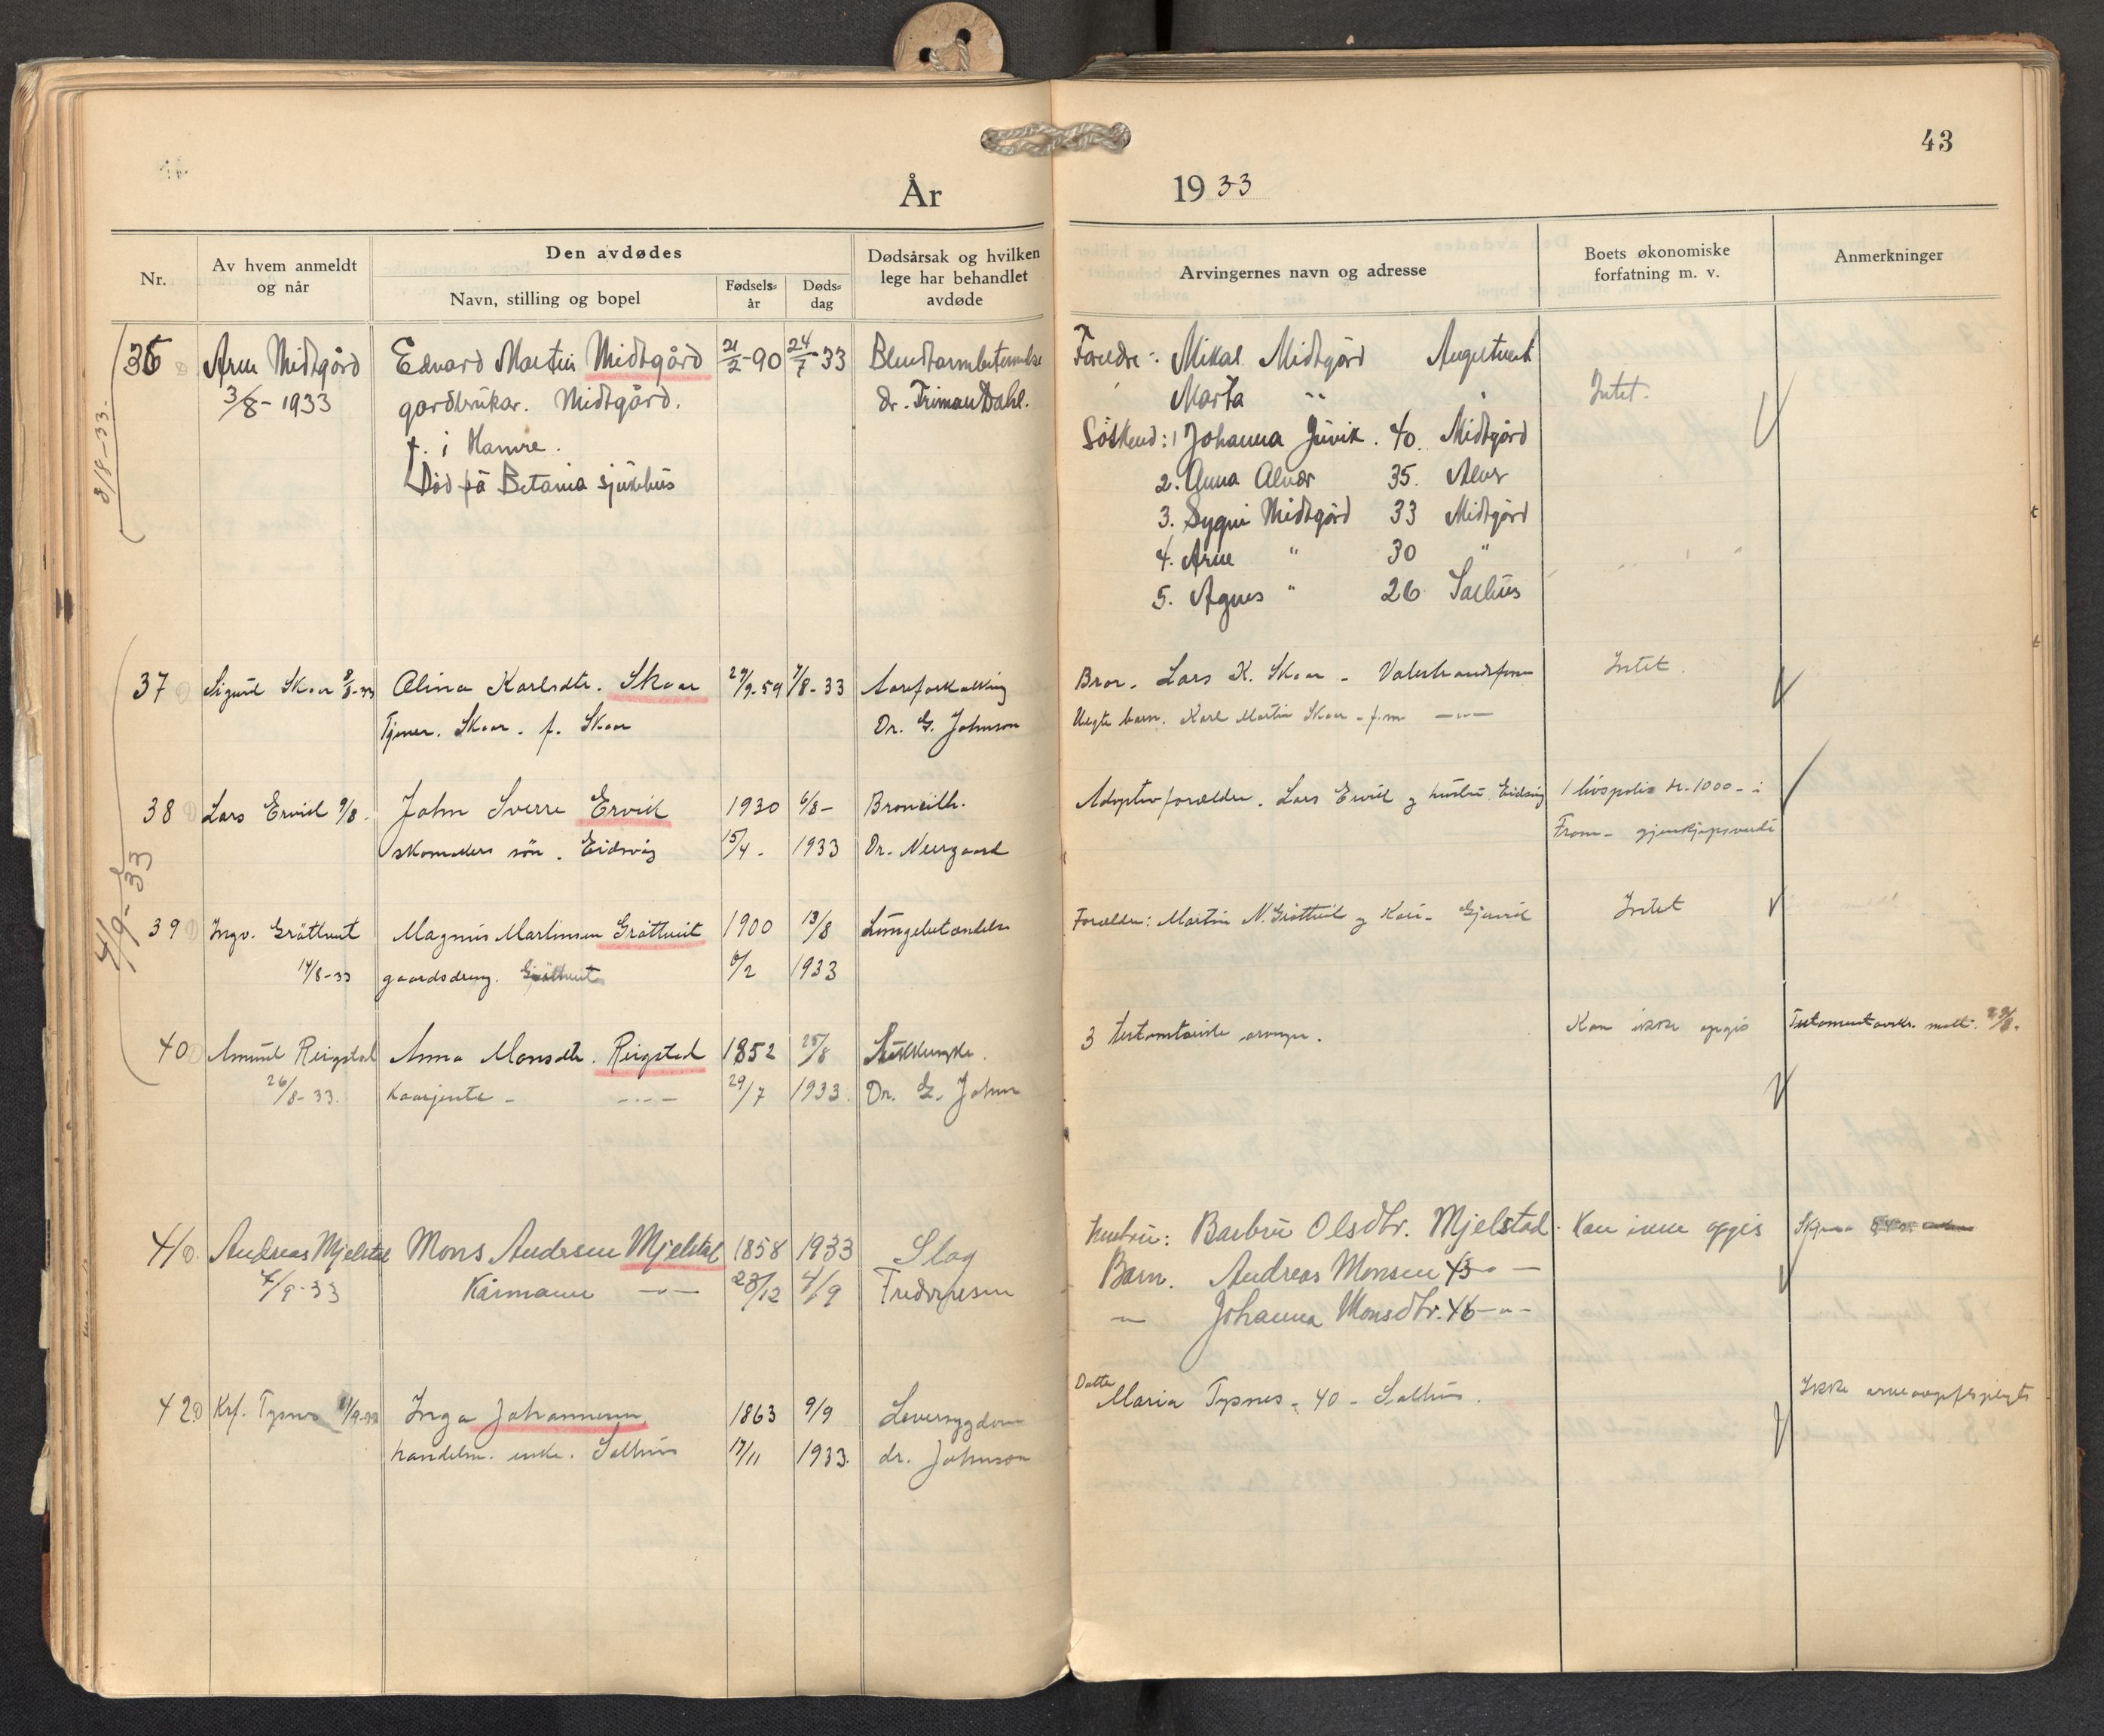 43
År 1933
Nr.
Av hvem anmeldt og når
Den avdødes
Navn, stilling og bopel
Fødsels-år
Døds-dag
Dødsårsak og hvilken lege har behandlet avdøde
Arvingernes navn og adresse
Boets økonomiske forfatning m. v.
Anmerkninger
3/8-33.
36 Arne Midtgård Edvard Martin Midtgård 21/2-90 24/7-33 Foreldre: Mikal Midtgård
3/8-1933 gardbrukar. Midtgård. dr. Dahl. Marta " Intet.
f. i Hamre. Søskend: 1 Johanna Juvik. 40. Midtgård
Død på Betania sjukehus 2. Anna Alvær 35. Alver
3. Sygni Midtgård 33 Midtgård
4. Arne " 30 "
5. Agnes " 26 Salhus
37 Sigurd Skaar 8/8-33 Olina Karlsdtr. Skaar 29/9-59 7/8-33 Aareforkalkning Bror. Lars K. Skaar - Intet.
Tjener. Skaar. f. Skaar Dr. G. Johnson Uegte barn. Karl Martin Skaar -
4/9-33
38 Lars Ervik 9/8. John Sverre Ervik 1930 6/8- Adoptivforældre. Lars Ervik og hustru Eidsvåg 1 livspolis kr. 1000- i
skomakers søn. Eidsvåg 15/4. 1933 Dr. Neergaard Fram- gjenkjøpsverdi
39 Ingv. Gråttveit Magnus Martinsen Gråttveit 1900 13/8 Lungebetændelse Forældre: Martin N. Gråttveit og Kari - Intet
14/8-33 gaardsdreng. Gråttveit 6/2 1933
40 Amund Reigstad Anna Monsdtr. Reigstad 1852 25/8 3 testamentariske arvinger. Kan ikke opgis
26/8-33. Kaarjente - -"- 29/7 1933. Dr. G. Johns
41 Andreas Mjelstad Mons Andersen Mjelstad 1858 1933 Slag Hustru: Barbru Olsdtr. Mjelstad. Kan ikke opgis
7/9-33 Kårmann -"- 23/12 4/9 Barn. Andreas Monsen 43 -"-
-"- Johanna Monsdtr. 46 -"-
42 Tysnes 11/9-33 Inga Johannesen 1863 9/9 Leversygdom Datter Maria Tysnes - 40 - Salhus. Ikke arveavgiftspligtig
handelsm. enke. Salhus 17/11 1933. dr. Johnson